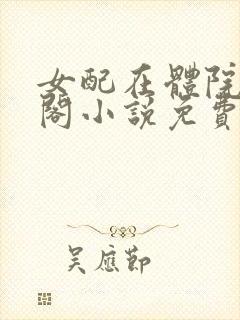 女配在體院
閣小說免費
吳應節